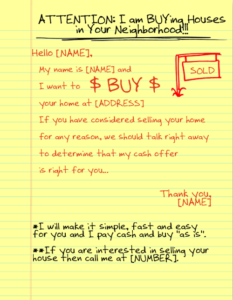 ATTENTION: I am BUYing Houses
in Your Neighborhood!!!
Hello [NAME],
My name is [NAME] and
I want to $ BUY $
SOLD
your home at [ADDRESS]
If you have considered selling your home
for any reason, we should talk right away
to determine that my cash offer
is right for you...
Thank you,
[NAME]
*I will make it simple, fast and easy
for you and I pay cash and buy "as is".
**If you are interested in selling your
house then call me at [NUMBER].